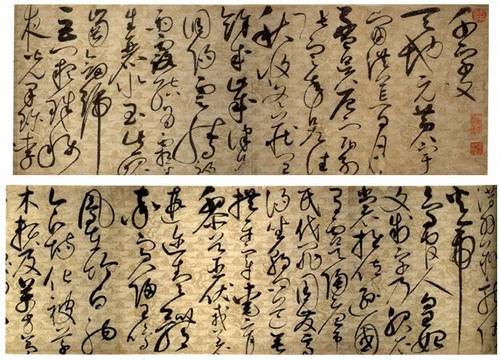 千字文
天地元黃宇
宙洪荒日月
盈昃辰宿列
張寒來暑往
秋收冬藏閏
餘成歲律呂
調陽雲騰
致雨露結為霜
金生麗水玉出崑
岡劍號
巨闕珠稱夜
光果珍李
火帝
鳥官人皇始
制文字乃服衣
裳推位遜國
有虞陶唐弔
民伐罪周發商
湯坐朝問道垂
拱平章愛育
黎首臣伏戎羌
遐邇壹體
率賓歸王鳴
鳳在竹白駒
食場化被草
木賴及萬方蓋